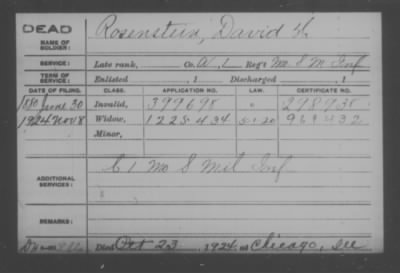 DEAD
NAME OF SOLDIER: Rosenstein, David H.
SERVICE: Late rank, Co. A, 1 Reg't Mo. S M Inf
TERM OF SERVICE: Enlisted , 1 Discharged , 1
DATE OF FILING. CLASS. APPLICATION NO. LAW. CERTIFICATE NO.
1880 June 30 Invalid, 399698 " 298938
1924 Nov 8 Widow, 1225434 5-1-20 969432
Minor,
ADDITIONAL SERVICES: C 1 Mo S Mil Inf
REMARKS:
Died Oct 23, 1924, at Chicago, Ill